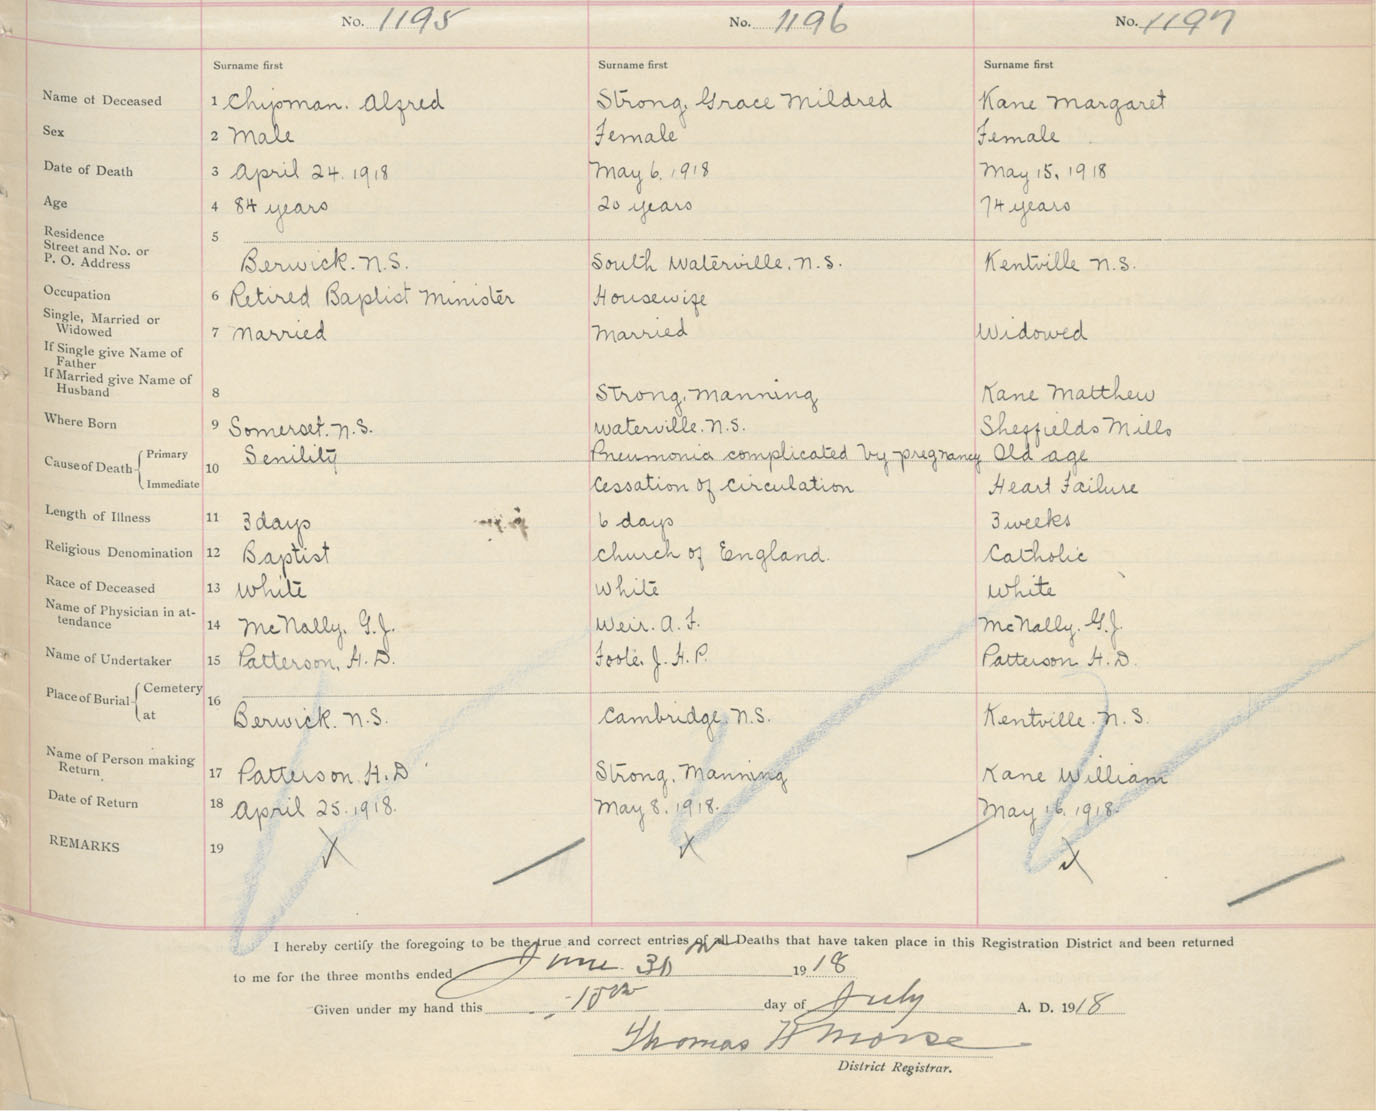 No. 1195 No. 1196 No. 1197
Surname first Surname first Surname first
Name of Deceased 1 Chipman. Alfred Strong, Grace Mildred Kane Margaret
Sex 2 Male Female Female
Date of Death 3 April 24. 1918 May 6. 1918 May 15. 1918
Age 4 84 years 20 years 74 years
Residence 5
Street and No. or
P. O. Address Berwick. N.S. South Waterville. N.S. Kentville N.S.
Occupation 6 Retired Baptist Minister Housewife
Single, Married or
Widowed 7 Married Married Widowed
If Single give Name of
Father
If Married give Name of
Husband 8 Strong, Manning Kane Matthew
Where Born 9 Somerset. N.S. Waterville. N.S. Sheffields Mills
Cause of Death Primary 10 Senility Pneumonia complicated by pregnancy Old age
Immediate Cessation of circulation Heart Failure
Length of Illness 11 3 days 6 days 3 weeks
Religious Denomination 12 Baptist Church of England. Catholic
Race of Deceased 13 White White White
Name of Physician in at-
tendance 14 McNally. G.J. Weir. A. F. McNally. G.J.
Name of Undertaker 15 Patterson, H. D. Foote, J. H. P. Patterson H. D.
Place of Burial Cemetery 16
at Berwick. N.S. Cambridge. N.S. Kentville. N.S.
Name of Person making
Return. 17 Patterson. H. D Strong, Manning Kane William
Date of Return 18 April 25. 1918. May 8. 1918. May 16. 1918.
REMARKS 19
I hereby certify the foregoing to be the true and correct entries of all Deaths that have taken place in this Registration District and been returned
to me for the three months ended June 30 1918
Given under my hand this day of July A. D. 1918
Thomas H Morse
District Registrar.